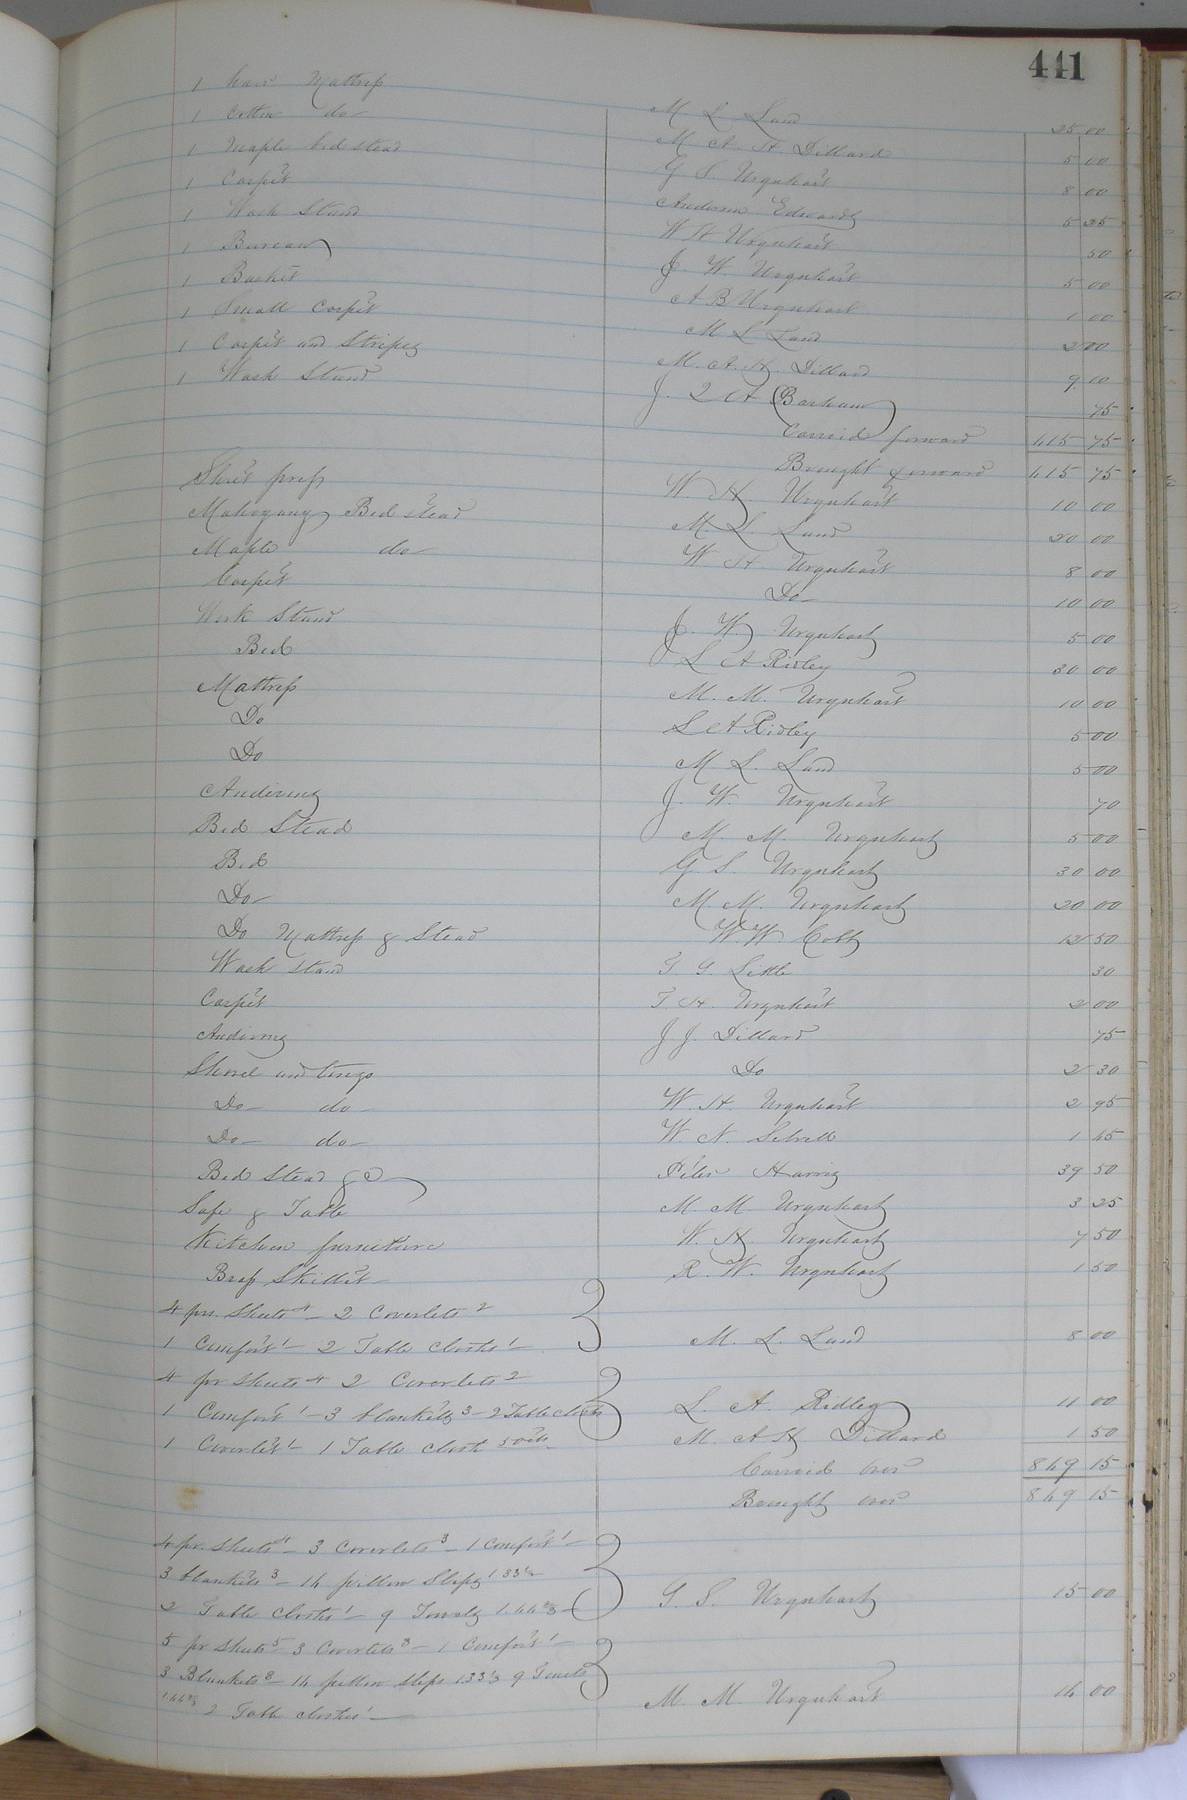 441
1 hair Mattress M L Land 25 00
1 Cotton do M A H Dillard 5 00
1 Maple bedstead G S Urquhart 8 00
1 Carpet Anderson Edwards 5 25
1 Wash Stand W H Urquhart 50
1 Bureau J. W. Urquhart 5 00
1 Basket A B Urquhart 1 00
1 Small Carpet M L Land 2 00
1 Carpet and Stripes M. A. H. Dillard 9 10
1 Wash Stand J. Q A Barham 75
Carried forward 415 75
Brought forward 415 75
Shirt press W H Urquhart 10 00
Mahogany Bed stead M. L. Land 20 00
Maple do W H Urquhart 8 00
Carpet Do 10 00
Work Stand J. W. Urquhart 5 00
Bed L A Ridley 30 00
Mattress M. M. Urquhart 10 00
Do L A Ridley 5 00
Do M L. Land 5 00
Andirons J. W. Urquhart 70
Bed Stead M. M. Urquhart 5 00
Bed G S. Urquhart 30 00
Do M M. Urquhart 20 00
Do Mattress & Stead W. W Cobb 12 50
Wash stand G. Little 30
Carpet H. Urquhart 2 00
Andirons J J. Dillard 75
Shovel and tongs Do 2 30
Do do W. H Urquhart 2 95
Do do W N. 1 45
Bed Stead &c Peter Harris 39 50
Safe & Table M M Urquhart 3 25
Kitchen furniture W. H. Urquhart 7 50
Brass Skillet R. W. Urquhart 1 50
4 pr. Sheets 4 - 2 Coverlets 2
1 Comfort 1 - 2 Table cloths 1 - M. L. Land 8 00
4 pr Sheets 4 2 Coverlets 2
1 Comfort 1 - 3 blankets 3 - 2 Table cloths L. A. Ridley 11 00
1 Coverlet 1 - 1 Table cloth 50cts M. A H Dillard 1 50
Carried over 849 15
Brought over 849 15
4 pr. Sheets 4 - 3 Coverlets 3 - 1 Comfort 1 -
3 blankets 3 - 14 pillow Slips 1 33⅓
2 Table cloths 1 - 9 Towels 1.44⅔ G. S. Urquhart 15 00
5 pr Sheets 5 3 Coverlets 3 - 1 Comfort 1 -
3 Blankets 3 - 14 pillow slips 1 33⅓ 9 Towels
1.44⅔ 2 Table cloths 1 - M M Urquhart 14 00